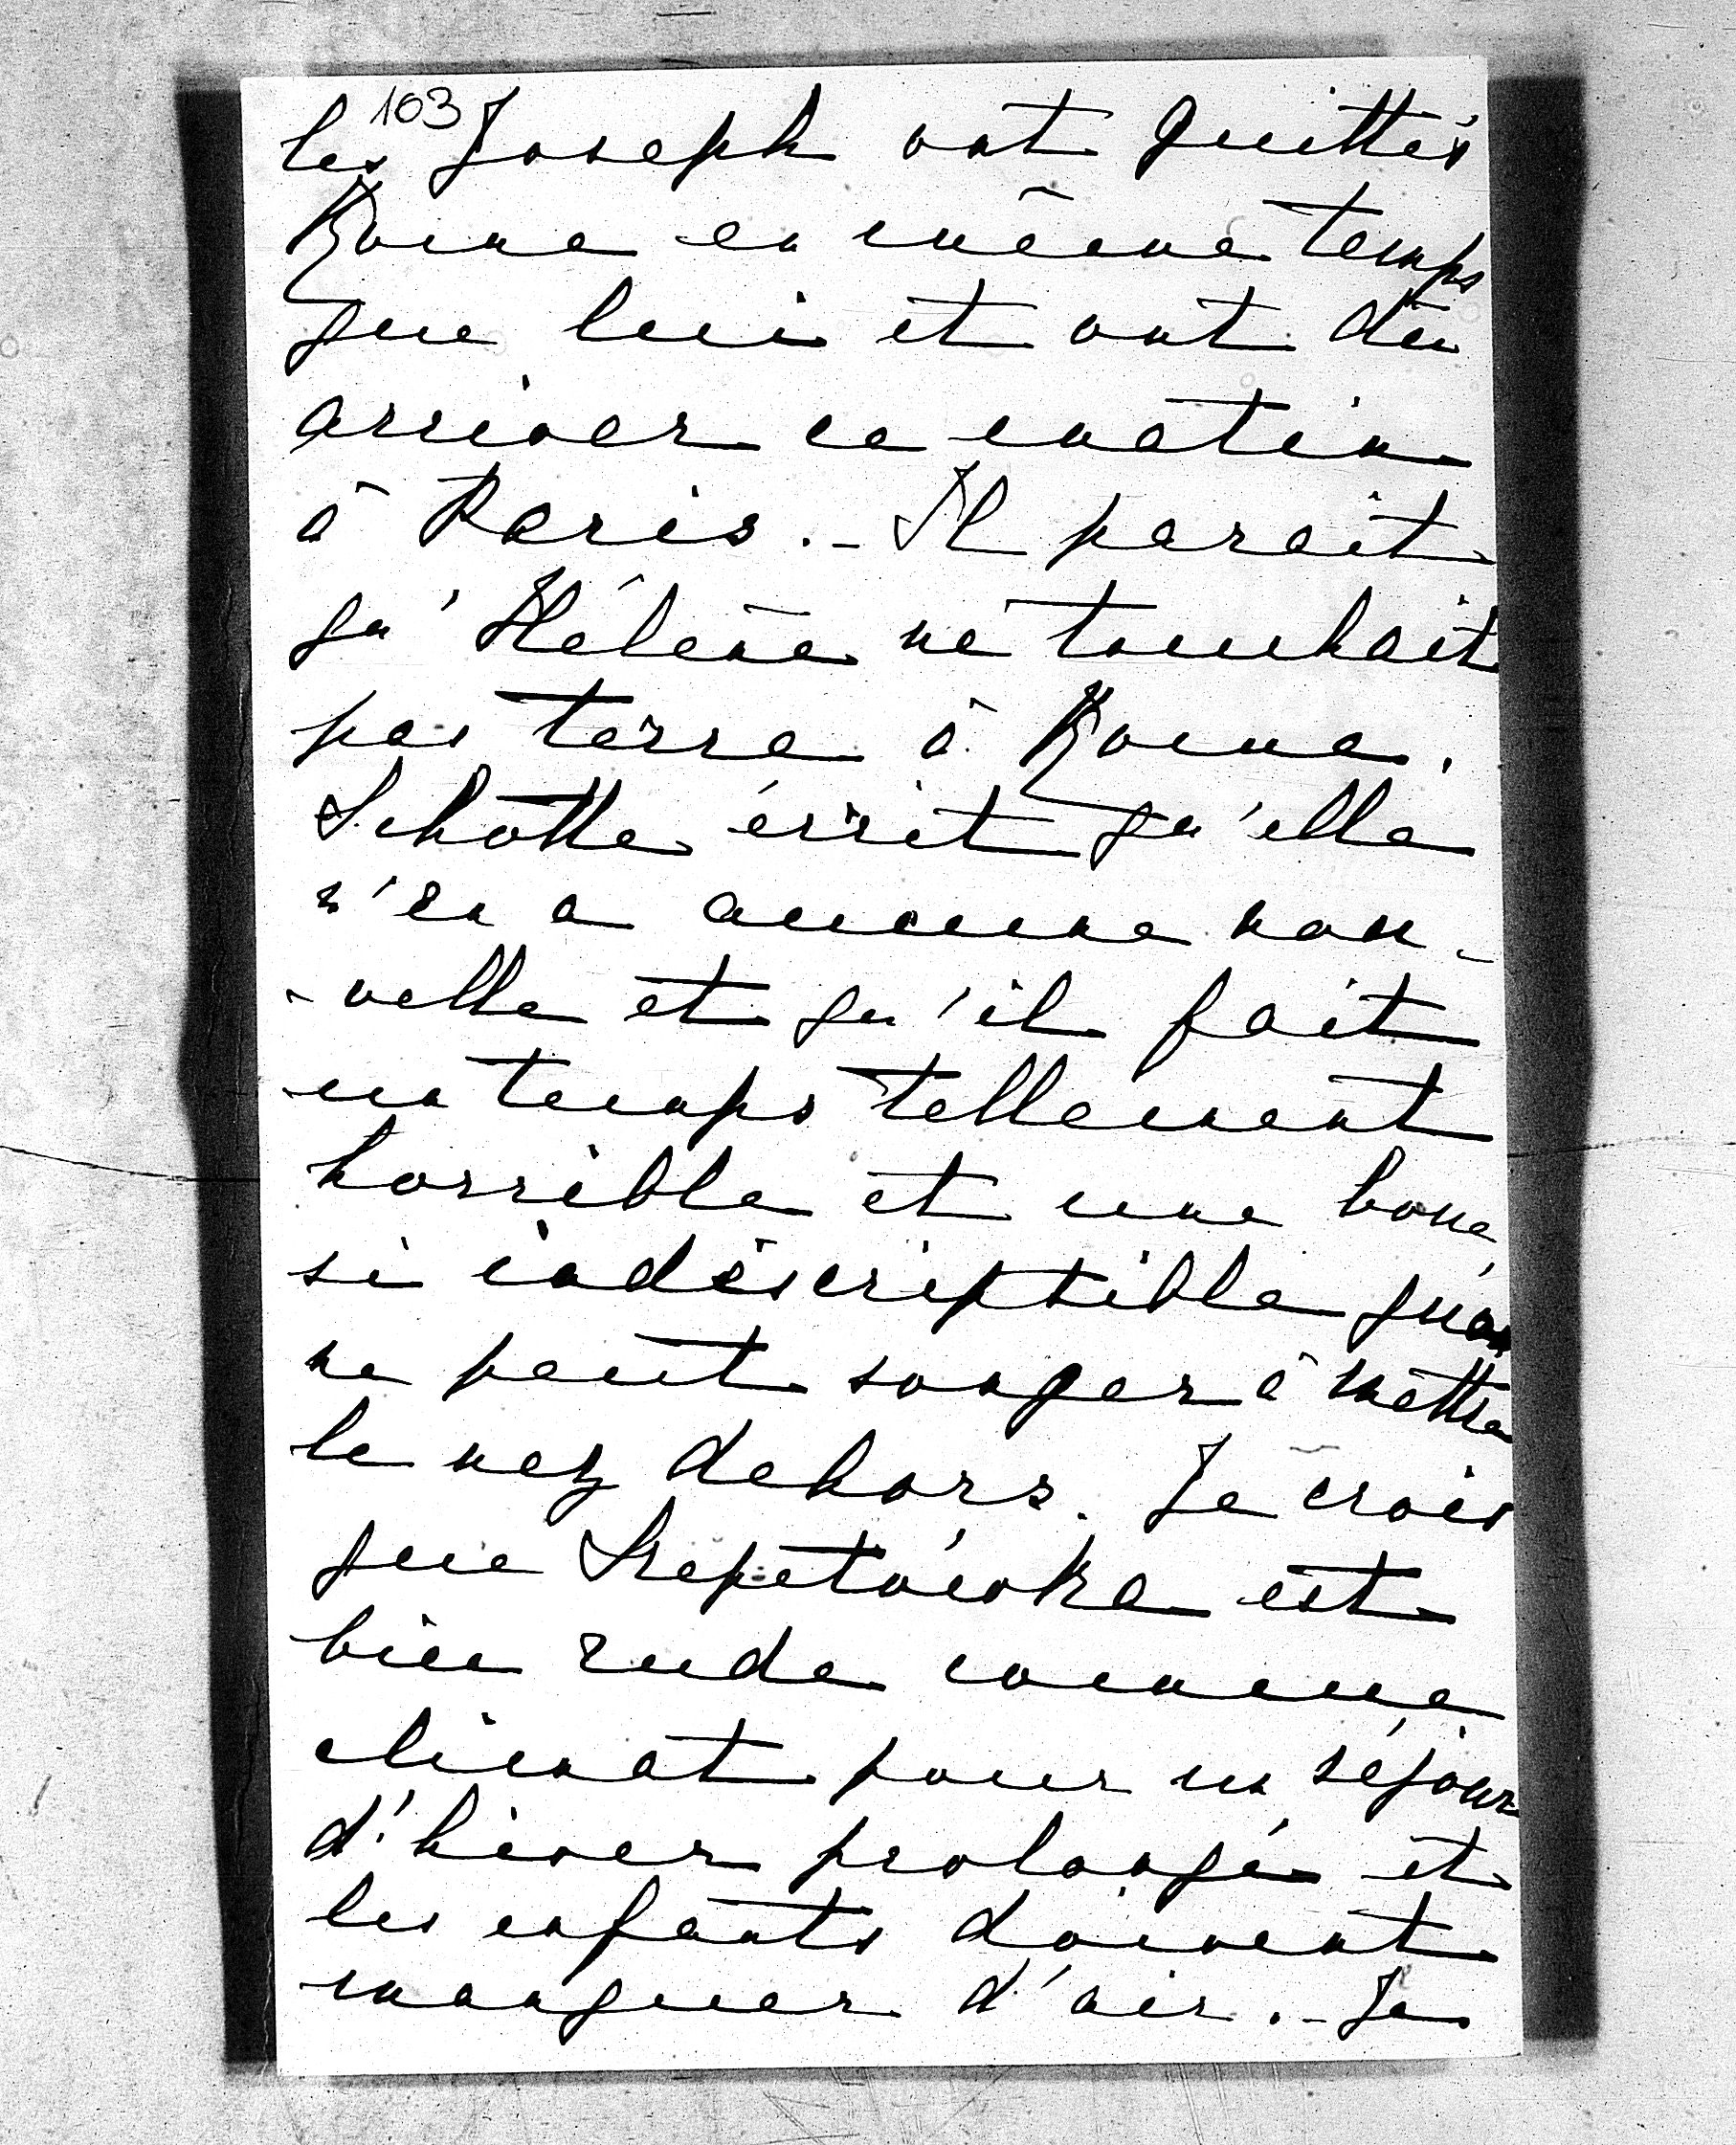 103
les Joseph ont quittés
Rome en même temps
que lui et ont dû
arriver ce matin
à Paris. - Il parait
qu'Hélène ne touchait
pas terre à Rome.
écrit qu'elle
n'en a aucune nou-
-velle et qu'il fait
un temps tellement
horrible et une boue
si indescriptible qu'on
ne peut songer à mettre
le nez dehors. Je crois
que est
bien rude comme
climat pour un séjour
d'hiver prolongé et
les enfants doivent
manquer d'air. - Je